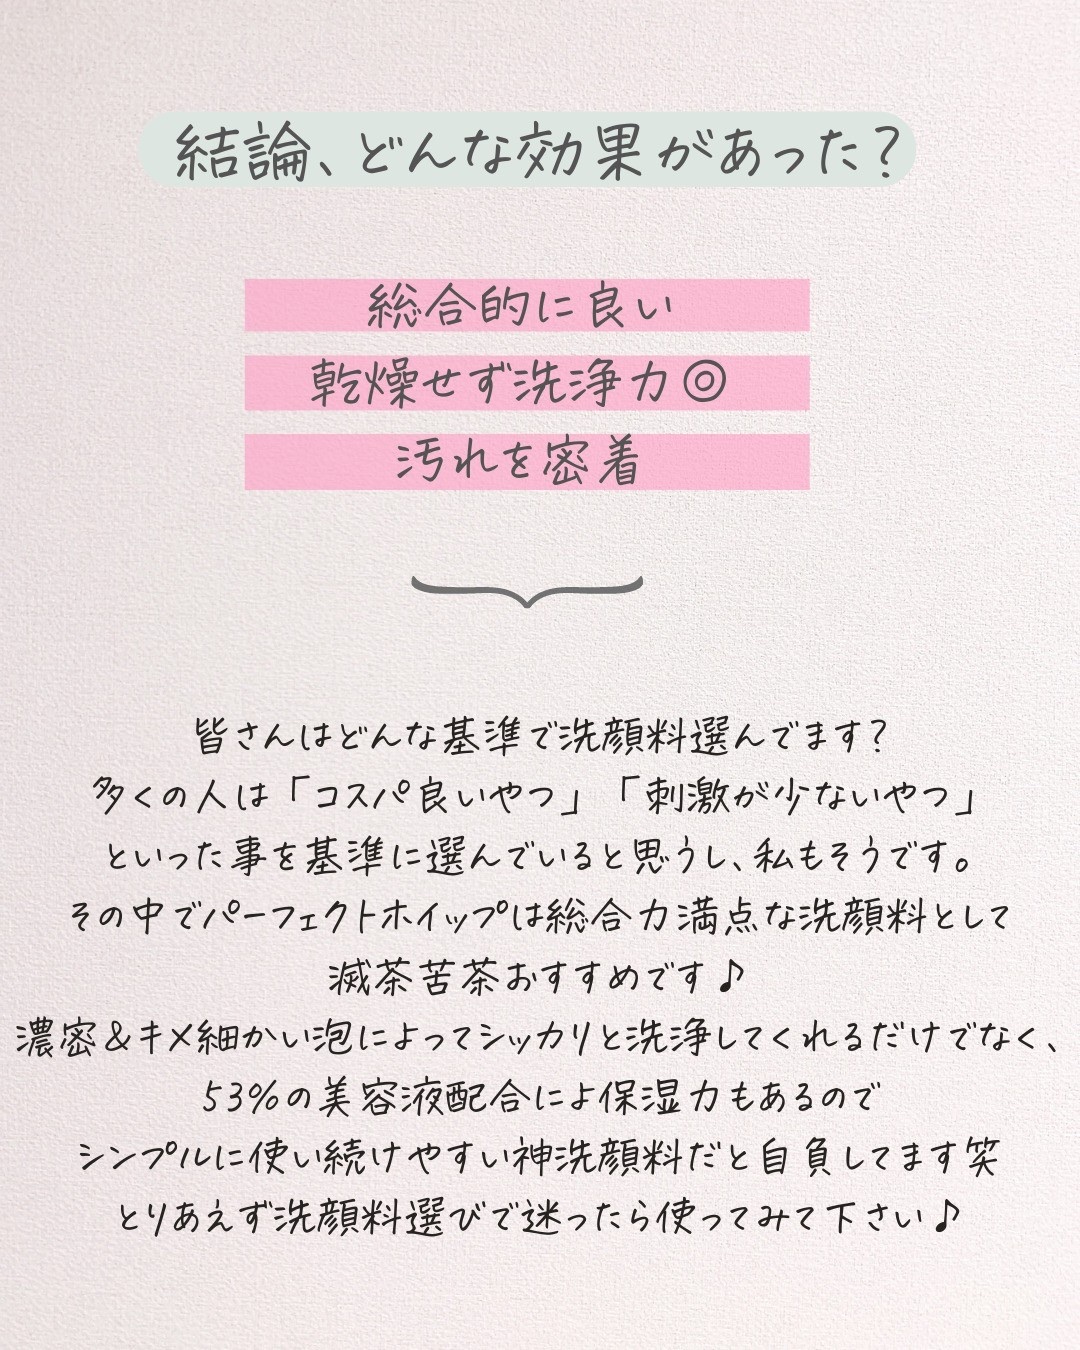 結論、どんな効果があった?
総合的に良い
乾燥せず洗浄力◎
汚れを密着
皆さんはどんな基準で洗顔料選んでます?
多くの人は「コスパ良いやつ」「刺激が少ないやつ」
といった事を基準に選んでいると思うし、私もそうです。
その中でパーフェクトホイップは総合力満点な洗顔料として
滅茶苦茶おすすめです♪
濃密&キメ細かい泡によってシッカリと洗浄してくれるだけでなく、
53%の美容液配合によ保湿力もあるので
シンプルに使い続けやすい神洗顔料だと自負してます笑
とりあえず洗顔料選びで迷ったら使ってみて下さい♪